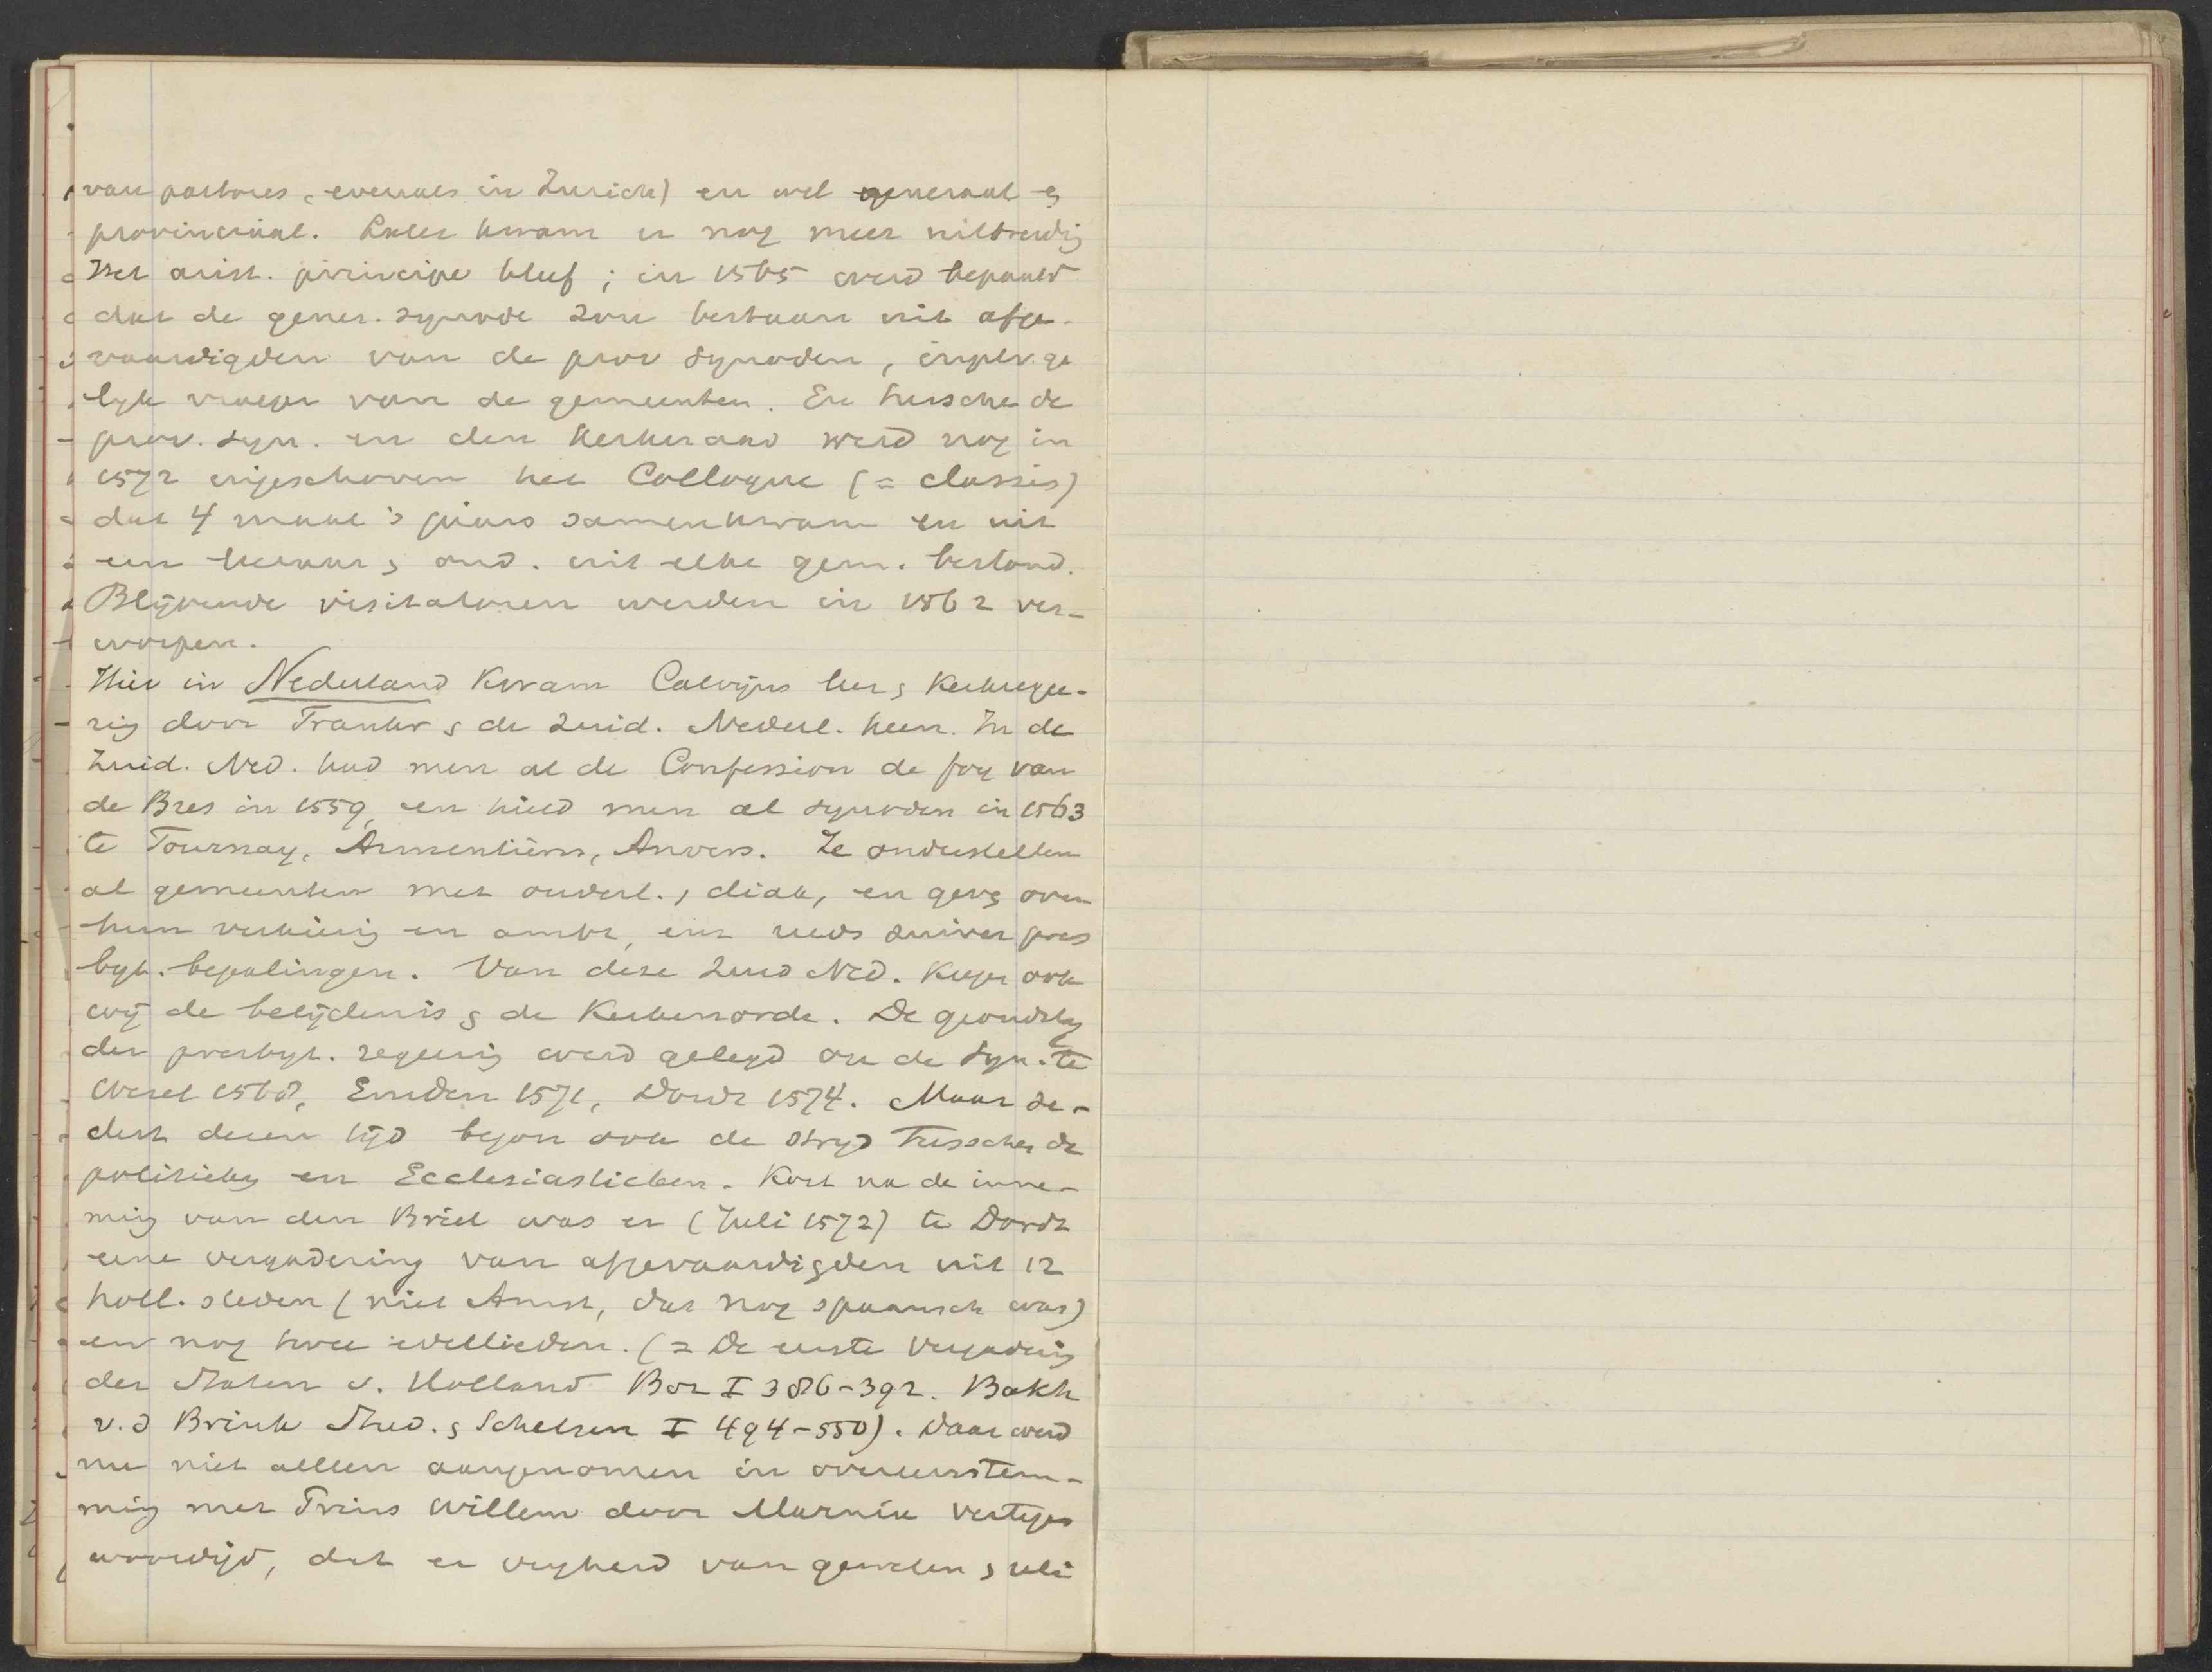 van pastores, evenals in Zurich) en wel generaal en
provinciaal. Later kwam er nog meer uitbreidg
Het arist. principe bleef; in 1565 werd bepaald
dat de gener. synode zou bestaan uit afge-
vaardigden van de prov synoden, in plv. ge
lijk vroeger van de gemeenten. En tusschen de
prov. syn. en den Kerkeraad werd nog in
1572 ingeschoven het Colloque (= classis)
dat 4 maal 's jaars samenkwam en uit
een leeraar & oud. uit elke gem. bestond.
Blijvende visitatoren werden in 1562 ver-
worpen.
Hier in Nederland kwam Calvijns leer & Kerkrege-
rig door Frankr & de Zuid. Nederl. heen. In de
Zuid. Ned. had men al de Confession de foy van
de Bres in 1559, en hield men al synoden in 1563
te Tournay, Armentièrs, Anvers. Ze onderstellen
al gemeenten met ouderl., diak, en gevg over
hun verkiezig en ambt, enz reeds zuiver pres
byt. bepalingen. Van deze Zuid Ned. kregen ook
wij de belijdenis & de Kerkenorde. De grondslag
der presbyt. regeerig werd gelegd op de syn. te
Wesel 1568, Emden 1571, Dordr 1574. Maar se-
dert dezen tijd begon ook de strijd tusschen de
politieken en Ecclesiastieken. Kort na de inne-
mig van den Briel was er (Juli 1572) te Dordr
eene vergadering van afgevaardigden uit 12
holl. steden (niet Amst, dat nog spaansch was)
en nog twee edellieden. (= De eerste Vergaderig
der Staten v. Holland Bor I 386-392. Bakh
v.d Brink Stud. & Schetsen I 494-550). Daar werd
nu niet alleen aangenomen in overeenstem-
mig met Prins Willem door Marnix vertegen
woordigd, dat er vrijheid van geweten & reli